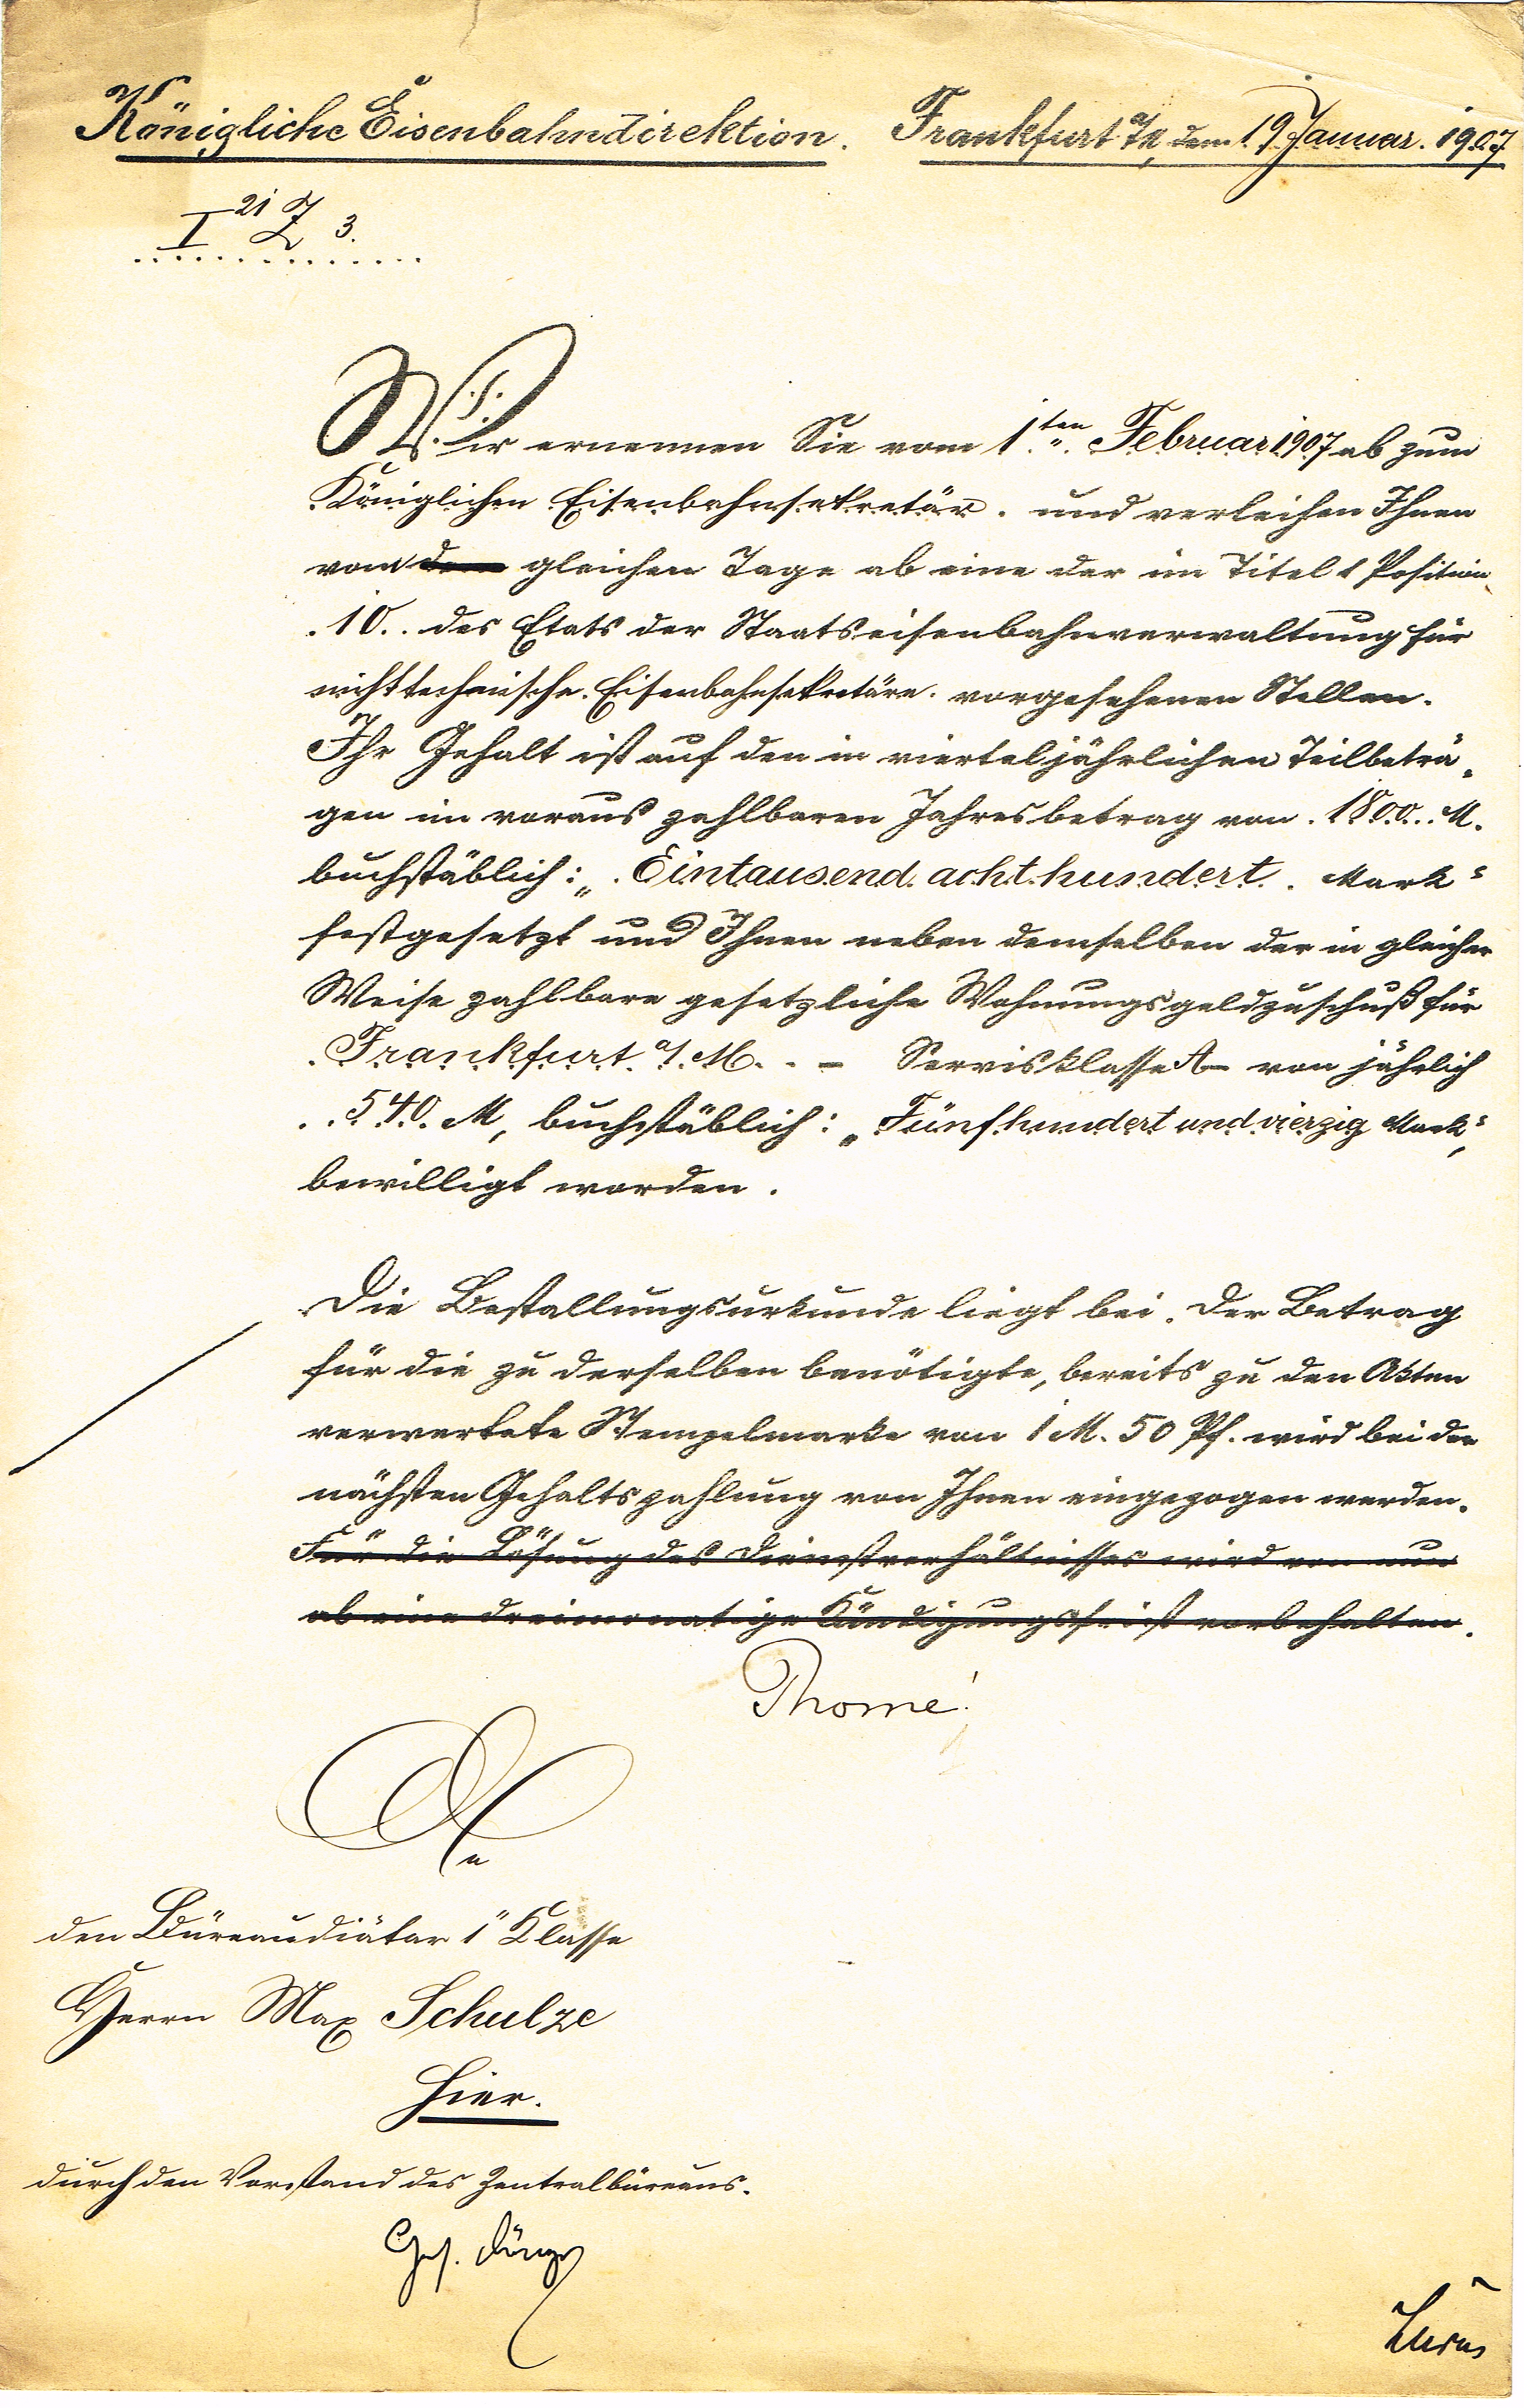 Königliche Eisenbahndirektion. Frankfurt a/M, dem 19 Januar. 1907
I 21 Z 3.
Wir ernennen Sie vom 1.ten Februar 1907 ab zum
Königlichen Eisenbahnsekretär. und verleihen Ihnen
vom dem gleichen Tage ab eine der im Titel 1 Position
10.. des Etats der Staatseisenbahnverwaltung für
nichttechnische Eisenbahnsekretäre. vorgesehenen Stellen.
Ihr Gehalt ist auf den in vierteljährlichen Teilbeträ„
gen im voraus zahlbaren Jahresbetrag von 1800.. M.
buchstäblich: „Eintausend achthundert. Mark“
festgesetzt und Ihnen neben demselben der in gleicher
Weise zahlbare gesetzliche Wohnungsgeldzuschuß für
Frankfurt a/M. – Servisklasse A – von jährlich
540. M, buchstäblich: „Fünfhundert und vierzig Mark“,
bewilligt worden.
Die Bestallungsurkunde liegt bei. Der Betrag
für die zu derselben benötigte, bereits zu den Akten
verwertete Stempelmarke von 1 M. 50 Pf. wird bei der
nächsten Gehaltszahlung von Ihnen eingezogen werden.
Für die Lösung des Dienstverhältnisses wird von nun
ab eine dreimonatige Kündigungsfrist vorbehalten.
Thomé!
An
den Büreaudiätar 1" Klasse
Herrn Max Schulze
Hier.
durch den Vorstand des Zentralbüreaus.